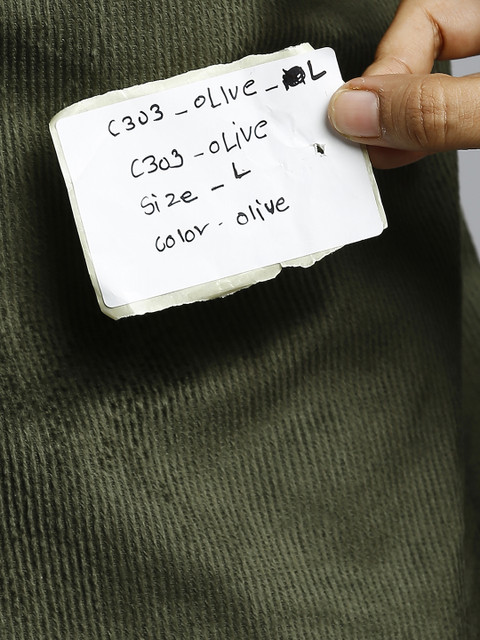 C303 - OLIVE - L
C303 - OLIVE
Size - L
Color - olive